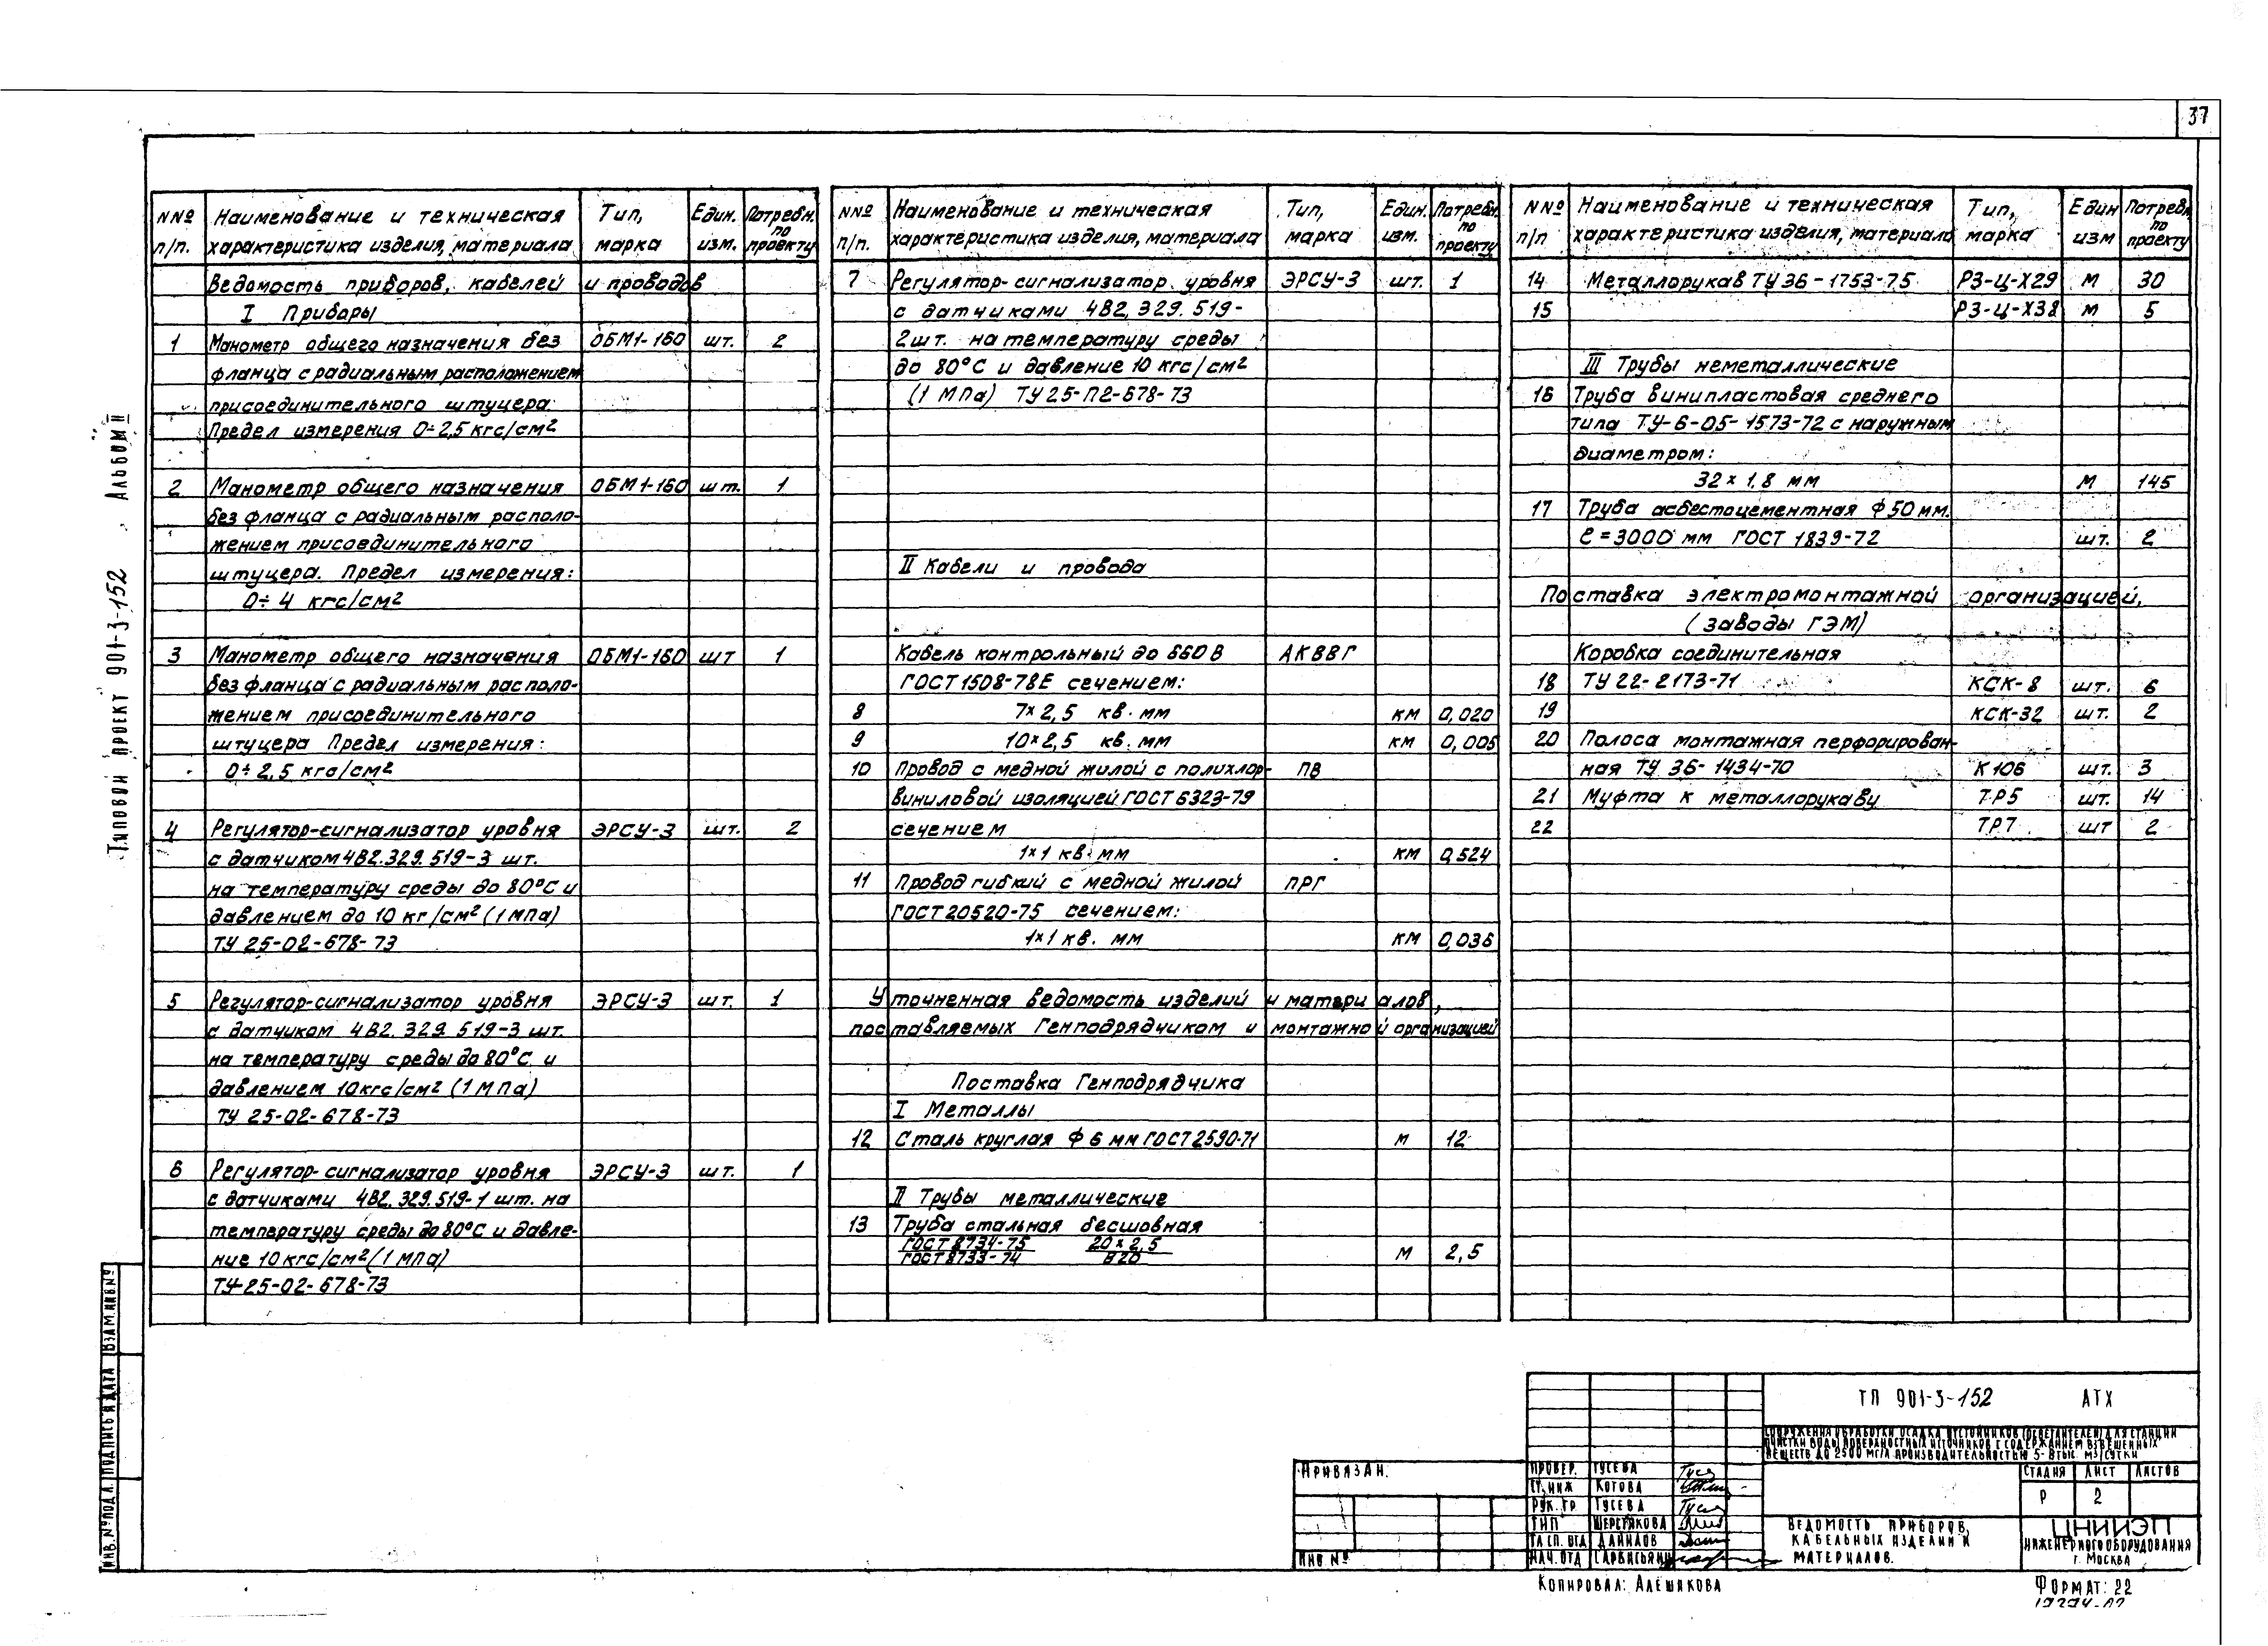 37
Типовой проект 901-3-152 Альбом II
NNº п/п. Наименование и техническая характеристика изделия, материала Тип, марка Един. изм. Потребн. по проекту
Ведомость приборов, кабелей и проводов
I Приборы
1 Манометр общего назначения без ОБМ1-160 шт. 2
фланца с радиальным расположением
присоединительного штуцера
Предел измерения 0÷2,5 кгс/см²
2 Манометр общего назначения ОБМ1-160 шт. 1
без фланца с радиальным располо-
жением присоединительного
штуцера. Предел измерения:
0÷4 кгс/см²
3 Манометр общего назначения ОБМ1-160 шт 1
без фланца с радиальным располо-
жением присоединительного
штуцера Предел измерения:
0÷2,5 кгс/см²
4 Регулятор-сигнализатор уровня ЭРСУ-3 шт. 2
с датчиком 4В2.329.519-3 шт.
на температуру среды до 80°С и
давлением до 10 кг/см² (1 МПа)
ТУ 25-02-678-73
5 Регулятор-сигнализатор уровня ЭРСУ-3 шт. 1
с датчиком 4В2.329.519-3 шт.
на температуру среды до 80°С и
давлением 10 кгс/см² (1 МПа)
ТУ 25-02-678-73
6 Регулятор-сигнализатор уровня ЭРСУ-3 шт. 1
с датчиками 4В2.329.519-1 шт. на
температуру среды до 80°С и давле-
ние 10 кгс/см² (1 МПа)
ТУ-25-02-678-73
NNº п/п. Наименование и техническая характеристика изделия, материала Тип, марка Един. изм. Потребн. по проекту
7 Регулятор-сигнализатор уровня ЭРСУ-3 шт. 1
с датчиками 4В2.329.519-
2шт. на температуру среды
до 80°С и давление 10 кгс/см²
(1 МПа) ТУ 25-П2-678-73
II Кабели и провода
Кабель контрольный до 660 В АКВВГ
ГОСТ 1508-78Е сечением:
8 7×2,5 кв. мм км 0,020
9 10×2,5 кв. мм км 0,005
10 Провод с медной жилой с полихлор- ПВ
виниловой изоляцией ГОСТ 6323-79
сечением
1×1 кв. мм км 0,524
11 Провод гибкий с медной жилой ПРГ
ГОСТ 20520-75 сечением:
1×1 кв. мм км 0,036
Уточненная ведомость изделий и материалов,
поставляемых Генподрядчиком и монтажной организацией
Поставка Генподрядчика
I Металлы
12 Сталь круглая ф 6 мм ГОСТ 2590-71 м 12
II Трубы металлические
13 Труба стальная бесшовная
ГОСТ 8734-75 20×2,5
ГОСТ 8733-74 В20 м 2,5
NNº п/п Наименование и техническая характеристика изделия, материала Тип, марка Един изм Потребн. по проекту
14 Металлорукав ТУ 36-1753-75 РЗ-Ц-Х29 м 30
15 РЗ-Ц-Х38 м 5
III Трубы неметаллические
16 Труба винипластовая среднего
типа ТУ-6-05-1573-72 с наружным
диаметром:
32×1,8 мм м 145
17 Труба асбестоцементная ф 50 мм.
ℓ=3000 мм ГОСТ 1839-72 шт. 2
Поставка электромонтажной организацией,
(заводы ГЭМ)
Коробка соединительная
18 ТУ 22-2173-71 КСК-8 шт. 6
19 КСК-32 шт. 2
20 Полоса монтажная перфорирован-
ная ТУ 36-1434-70 К 106 шт. 3
21 Муфта к металлорукаву ТР5 шт. 14
22 ТР7 шт 2
Инв. № подл. Подпись и дата Взам. инв №
Привязан.
Инв №
ТП 901-3-152 АТХ
Сооружения обработки осадка отстойников (осветлителей) для станции
очистки воды поверхностных источников с содержанием взвешенных
веществ до 2500 мг/л производительностью 5-8 тыс. м3/сутки
Провер. Гусева
Ст. инж Котова
Рук. гр Гусева
ГИП Шерстякова
Гл сп. отд Данилов
Нач. отд
Стадия Лист Листов
Р 2
Ведомость приборов,
кабельных изделий и
материалов.
ЦНИИЭП
инженерного оборудования
г. Москва
Копировал: Алешакова
Формат: 22